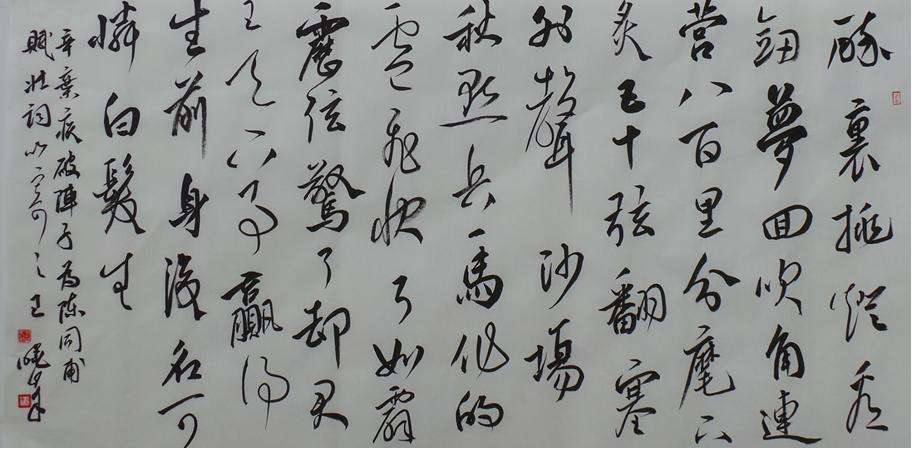 醉裏挑燈看
劍夢回吹角連
營八百里分麾下
炙五十弦翻塞
外聲沙場
秋點兵馬作的
盧飛快弓如霹
靂弦驚了卻君
王天下事贏得
生前身後名可
憐白髮生
辛棄疾破陣子為陳同甫
賦壯詞以寄之